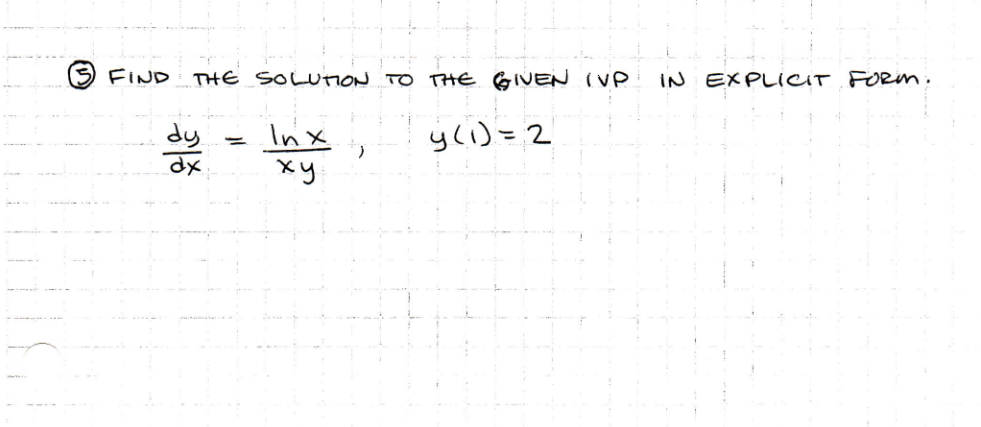 ⑤ FIND THE SOLUTION TO THE GIVEN IVP IN EXPLICIT FORM.
dy/dx = ln x/xy , y(1) = 2